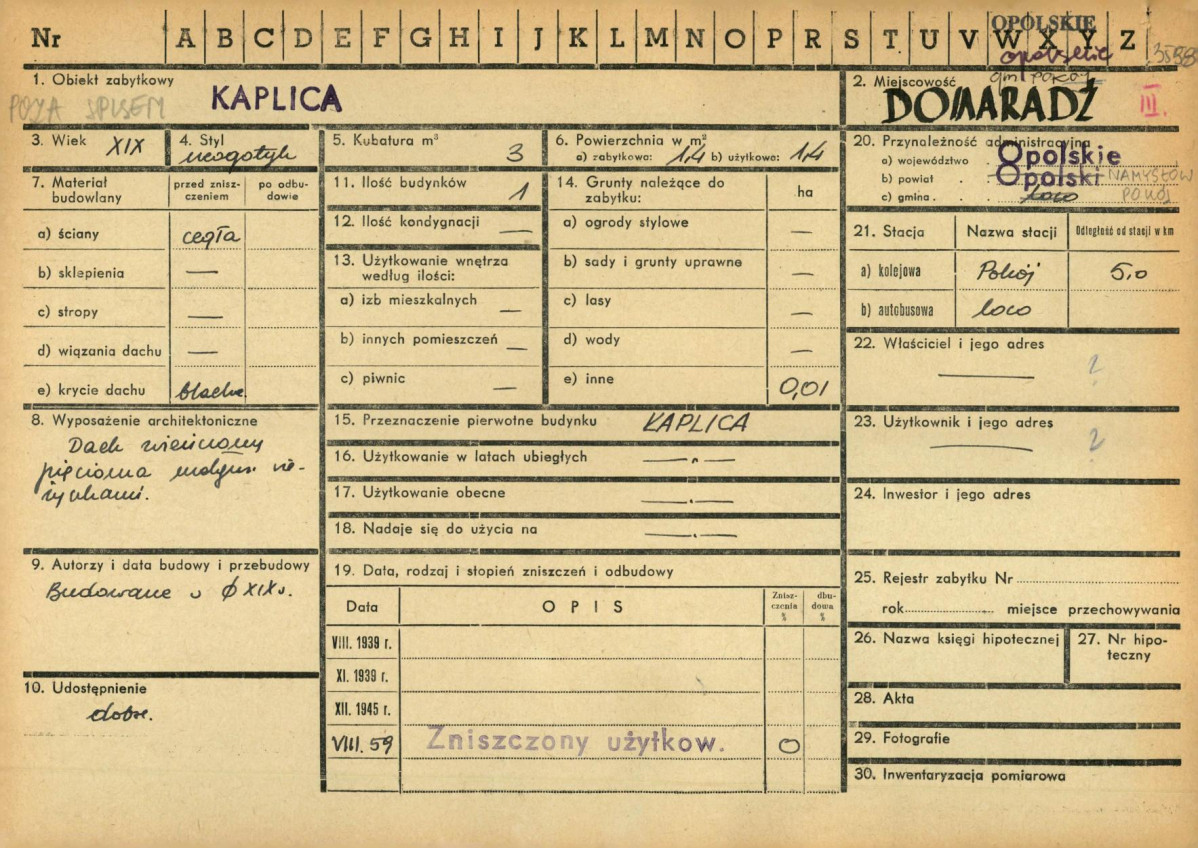 OPOLSKIE
Nr A B C D E F G H I J K L M N O P R S T U V W X Y Z 3588
opolskie
gm. POKÓJ
1. Obiekt zabytkowy
KAPLICA
POZA SPISEM
2. Miejscowość
DOMARADŹ
III.
3. Wiek XIX
4. Styl neogotyk
5. Kubatura m³ 3
6. Powierzchnia w m²
a) zabytkowa: 1,4 b) użytkowa: 1,4
20. Przynależność administracyjna
a) województwo Opolskie
b) powiat Opolski NAMYSŁÓW
c) gmina loco POKÓJ
7. Materiał budowlany
przed znisz-
czeniem
po odbu-
dowie
a) ściany cegła
b) sklepienia —
c) stropy —
d) wiązania dachu —
e) krycie dachu blacha
11. Ilość budynków 1
12. Ilość kondygnacji —
13. Użytkowanie wnętrza
według ilości:
a) izb mieszkalnych —
b) innych pomieszczeń —
c) piwnic —
14. Grunty należące do
zabytku:
ha
a) ogrody stylowe —
b) sady i grunty uprawne —
c) lasy —
d) wody —
e) inne 0,01
21. Stacja Nazwa stacji Odległość od stacji w km
a) kolejowa Pokój 5,0
b) autobusowa loco
22. Właściciel i jego adres
— ?
23. Użytkownik i jego adres
— ?
24. Inwestor i jego adres
8. Wyposażenie architektoniczne
Dach wieńczony
pięcioma
9. Autorzy i data budowy i przebudowy
Budowane
XIX w.
10. Udostępnienie
dobre.
15. Przeznaczenie pierwotne budynku KAPLICA
16. Użytkowanie w latach ubiegłych —„—
17. Użytkowanie obecne —„—
18. Nadaje się do użycia na —„—
19. Data, rodzaj i stopień zniszczeń i odbudowy
Data OPIS
Znisz-
czenia
%
dbu-
dowa
%
VIII. 1939 r.
XI. 1939 r.
XII. 1945 r.
VIII. 59 Zniszczony użytkow. 0
25. Rejestr zabytku Nr
rok miejsce przechowywania
26. Nazwa księgi hipotecznej
27. Nr hipo-
teczny
28. Akta
29. Fotografie
30. Inwentaryzacja pomiarowa